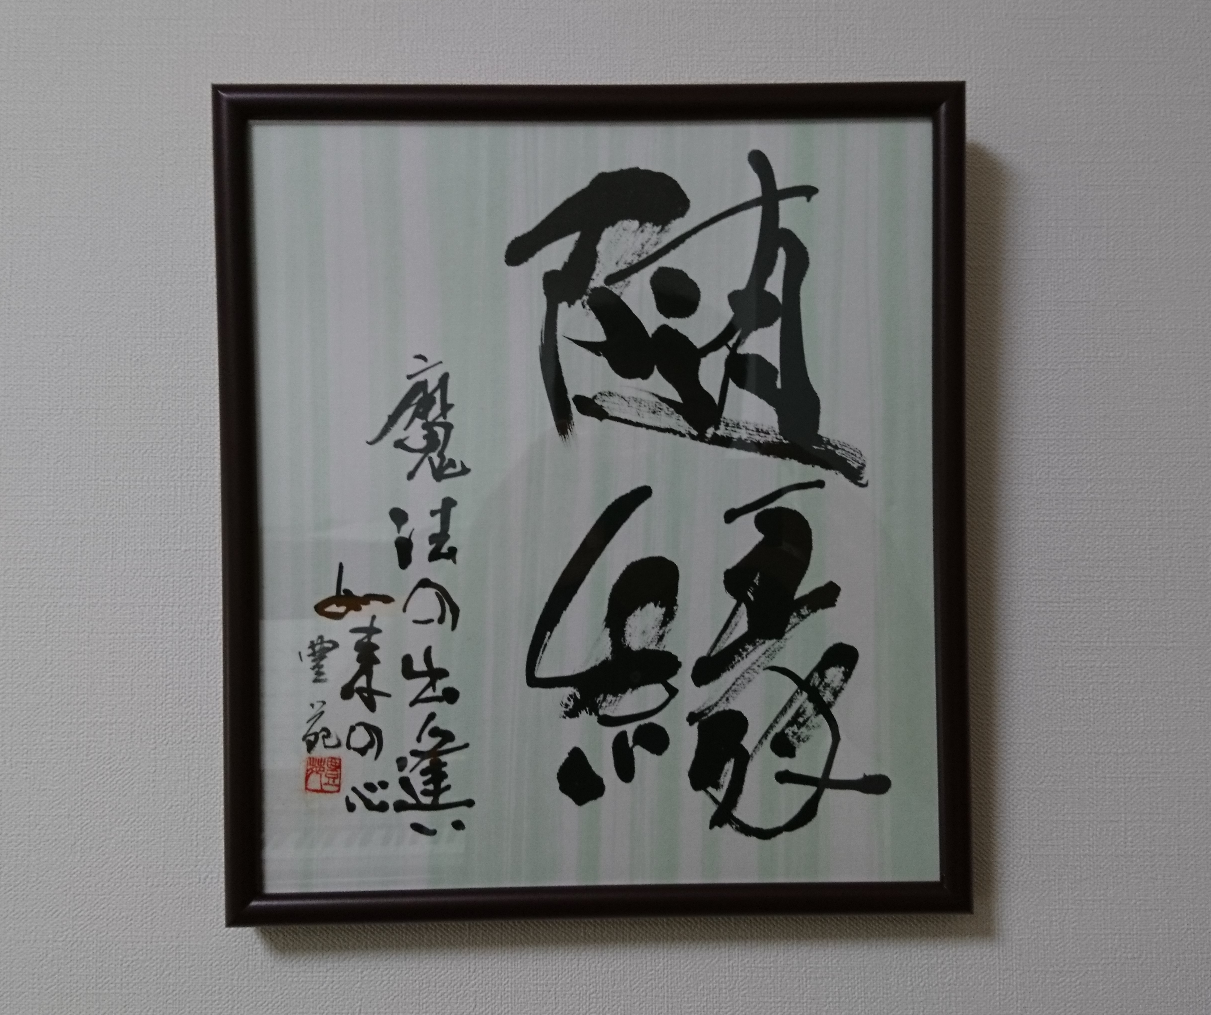 随縁
魔法の出逢い
如来の心
豊苑